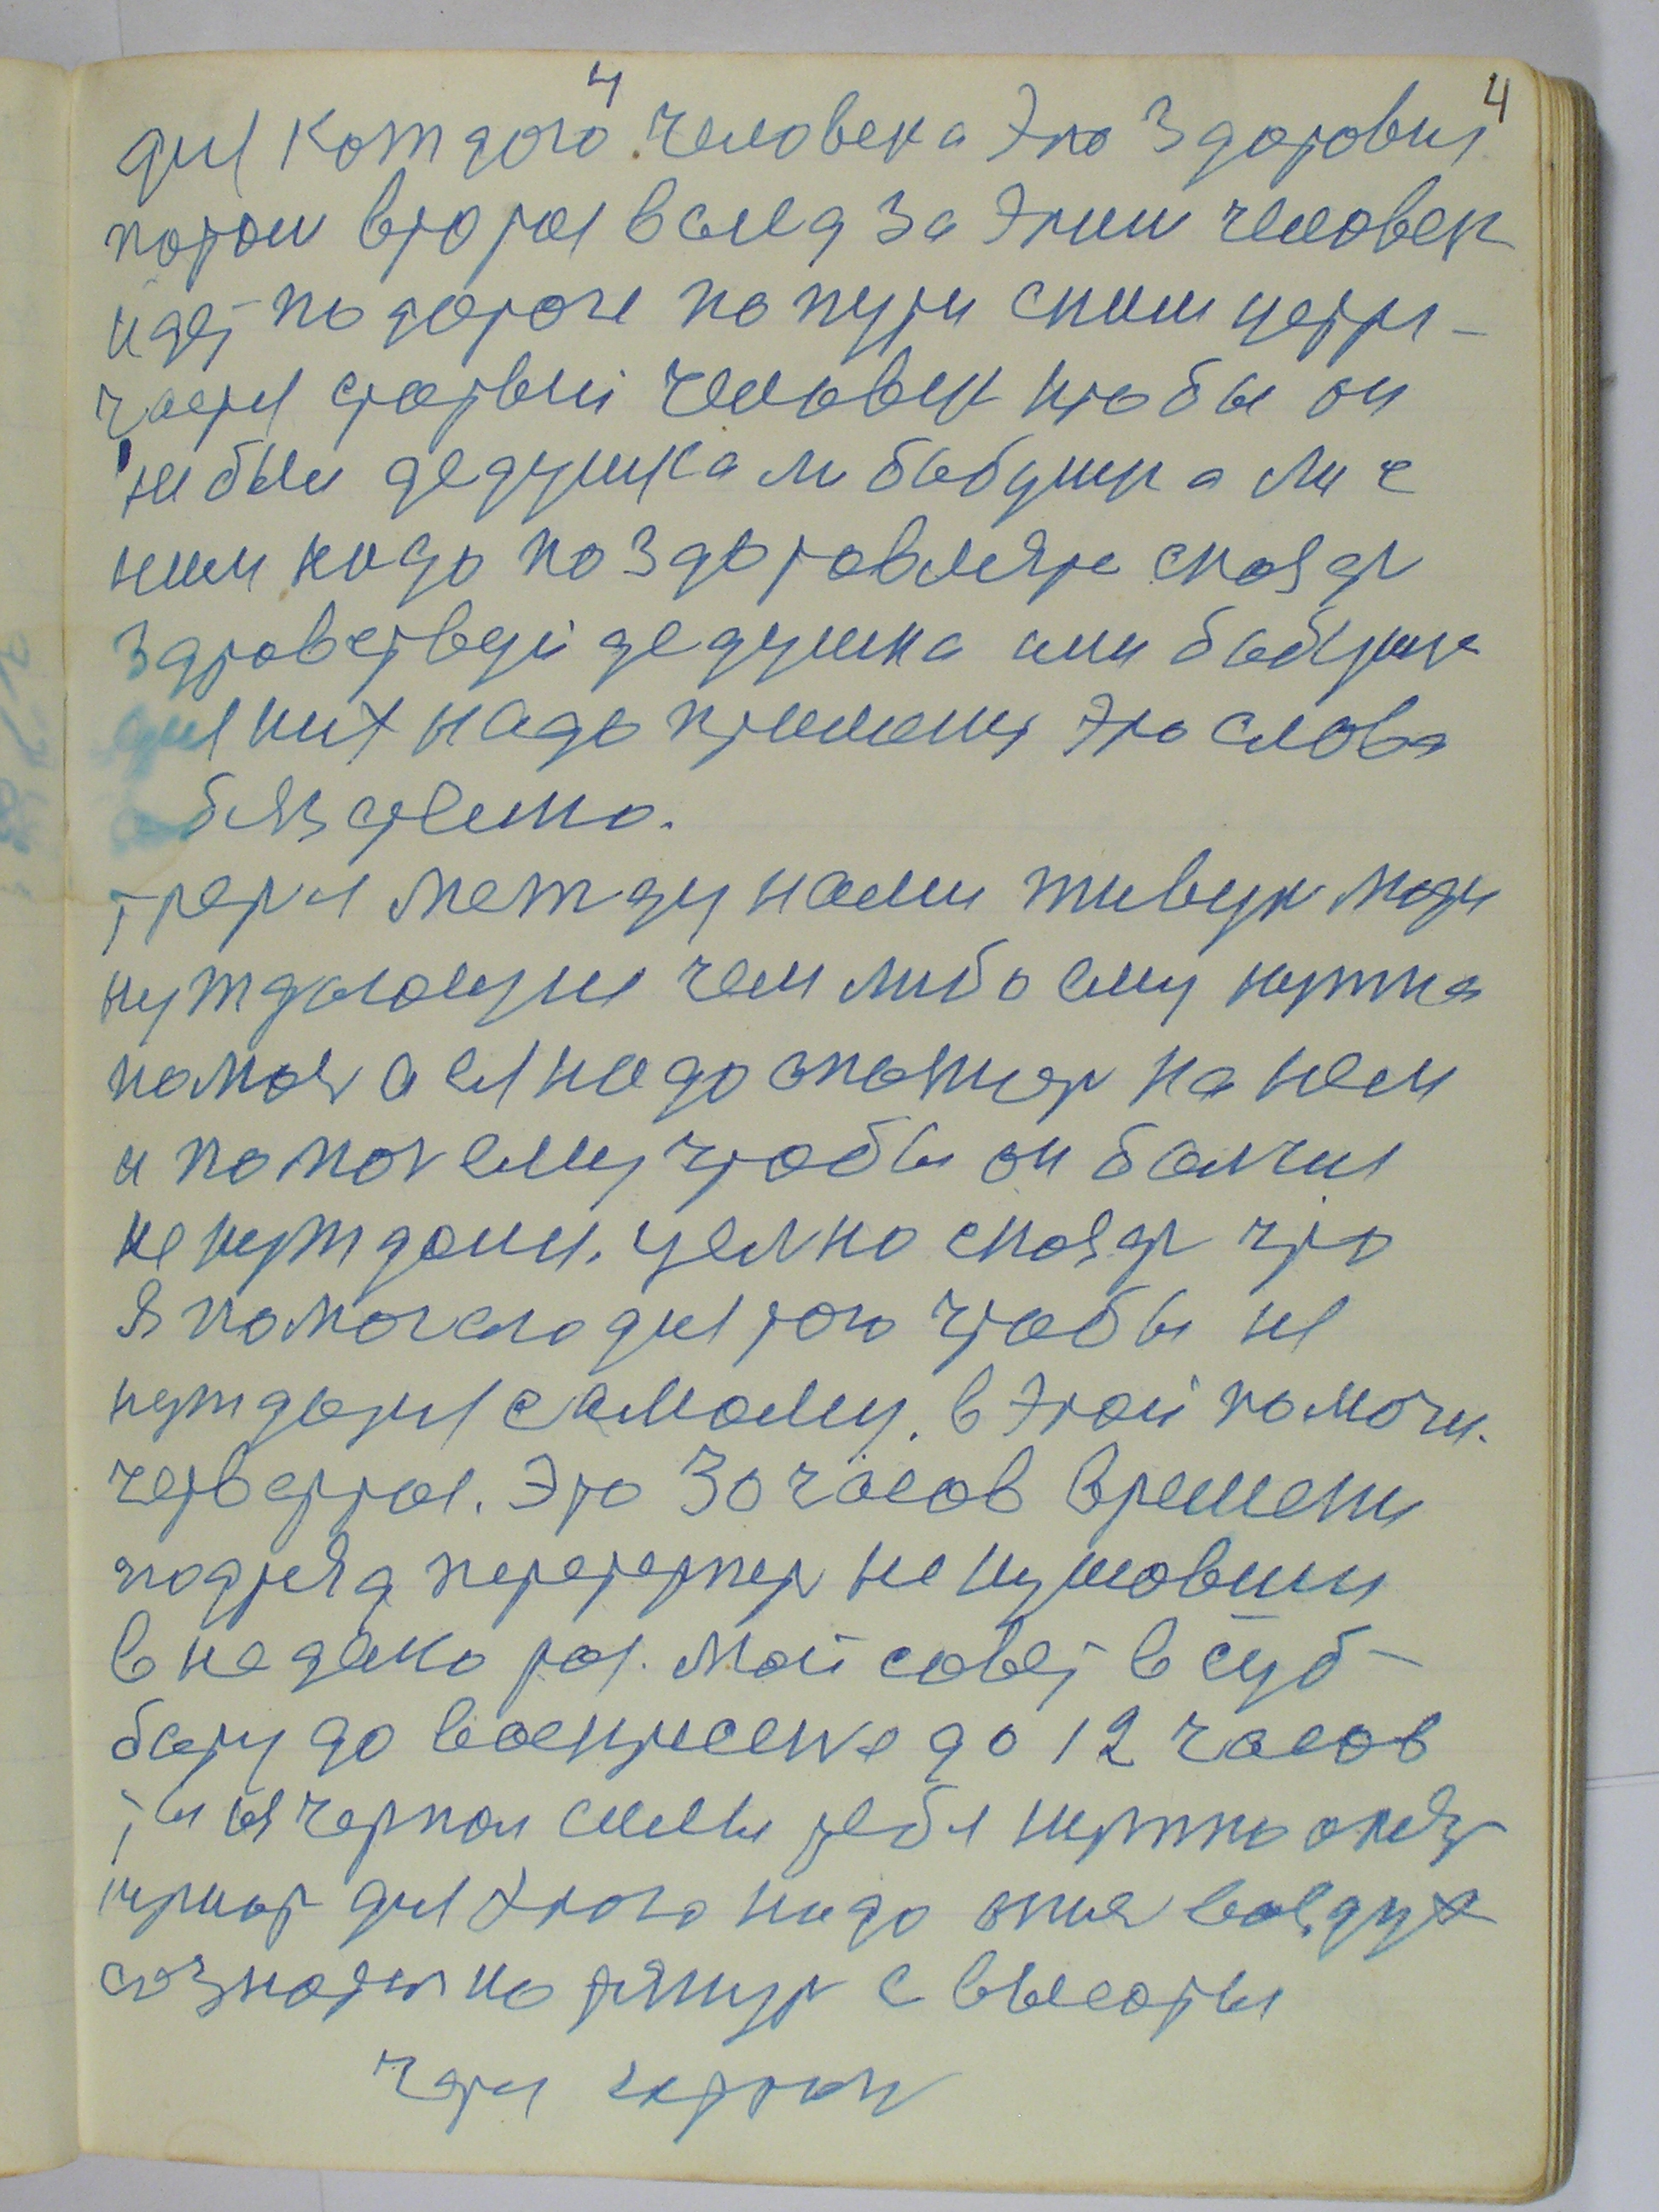 4 4
для каждого человека это здоровия
потом вторая вслед за этим человек
идет по дороге по пути сним устри-
чаетя старый человек кто бы он
небыл дедушка ли бабушка ли с
ним надо поздоровляте сказат
здравствуй дедушка или бабушка
для них надо это слова
обязателно.
третя между нами живут люди
нуждающие чем либо ему нужна
помоч а ея надо на нем
и помоч ему чтобы он балчи
не нуждали. уелно сказат что
я помогаю для того чтобы не
нуждатся самому. в этой помочи.
четвертая. Это 30 часов времени
подряд перетерпет не кушовши
в неделю раз. мой совет в суб-
боту до воскресене до 12 часов
ты чарпал силы тебя нужно опят
кушат для этого надо опят воздух
сознателно тянут с высоты
через гортан